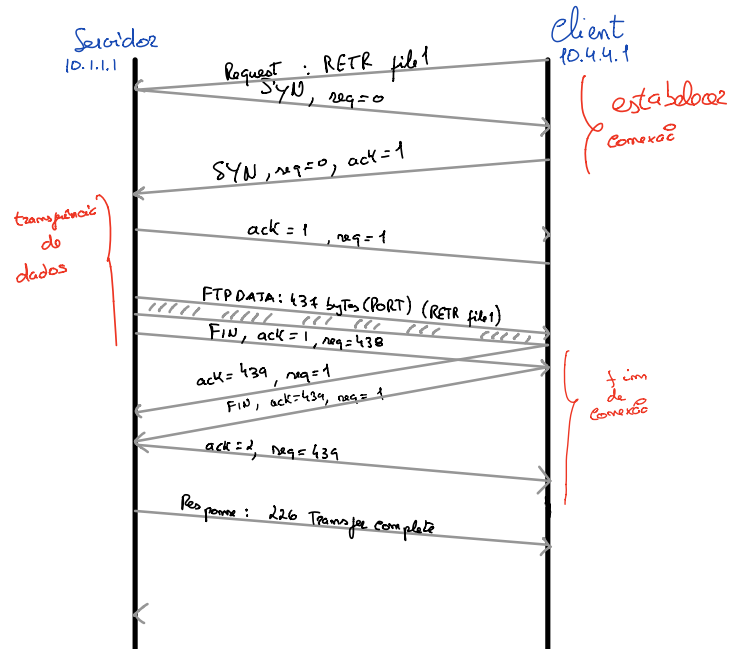 Servidor
10.1.1.1
Client
10.4.4.1
Request : RETR file1
SYN, seq=0
estabelecer
conexão
SYN, seq=0, ack=1
transferência
de
dados
ack=1, seq=1
FTP DATA: 437 bytes (PORT) (RETR file1)
FIN, ack=1, seq=438
ack=439, seq=1
FIN, ack=439, seq=1
fim
de
conexão
ack=2, seq=439
Response: 226 Transfer complete